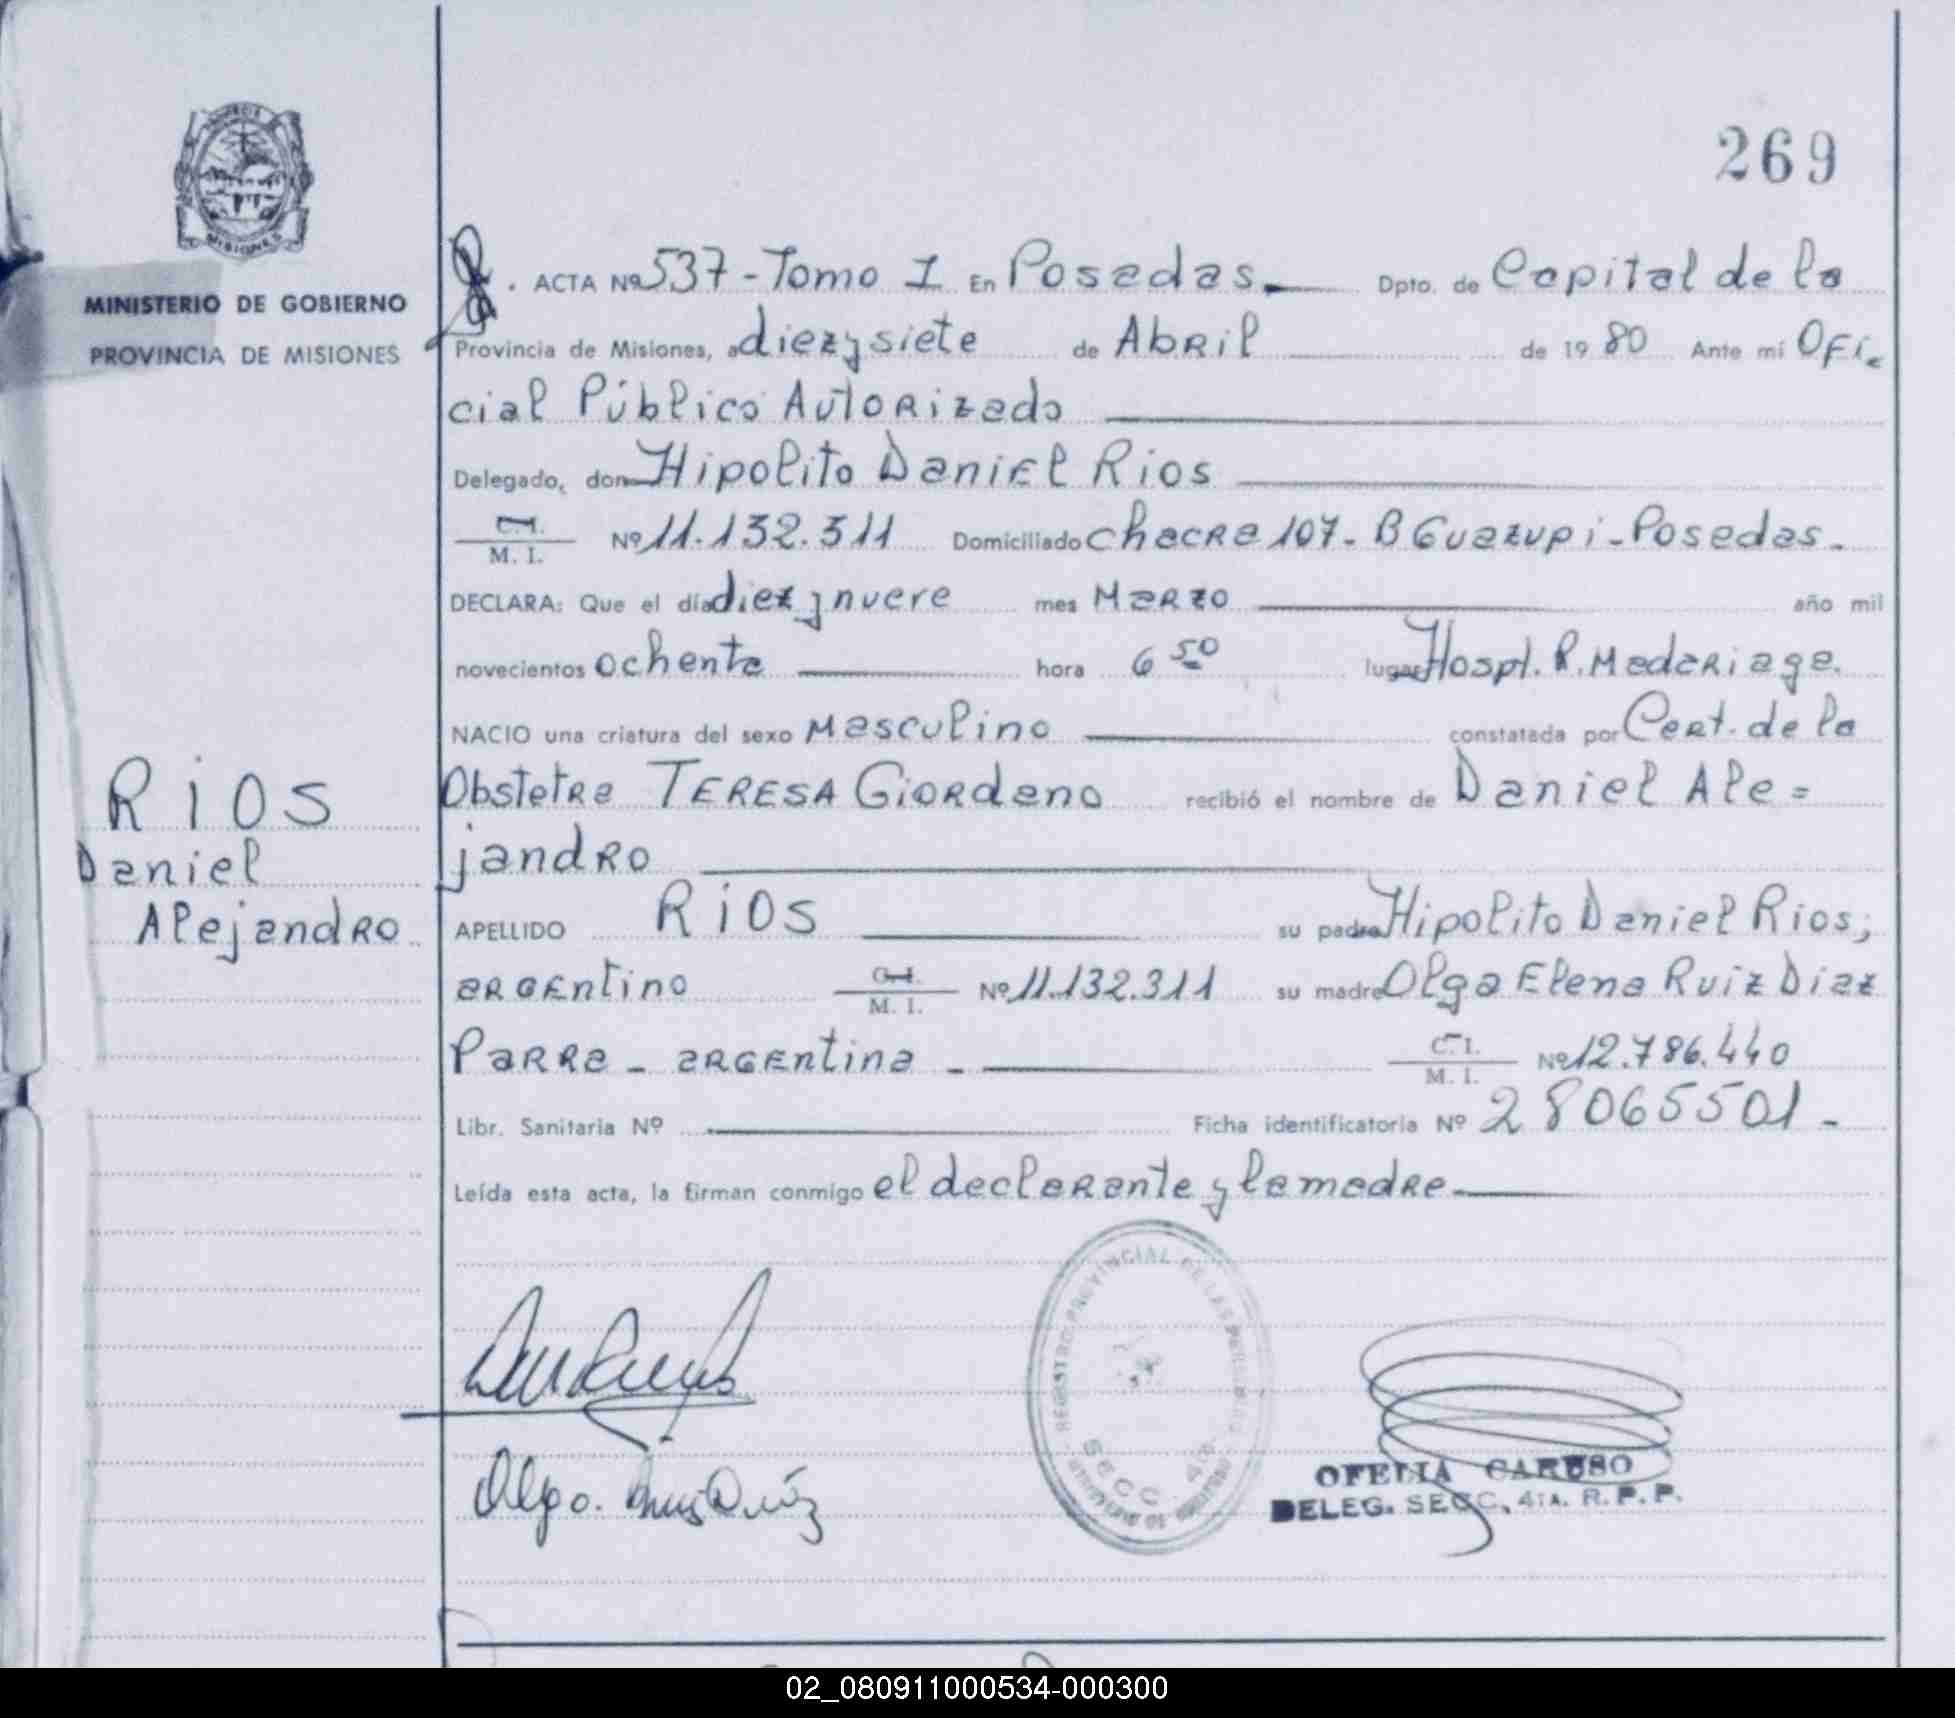 269
MISIONES
MINISTERIO DE GOBIERNO
PROVINCIA DE MISIONES
RiOS
Daniel
Alejandro
ACTA Nº 537 - Tomo I En Posadas. Dpto. de Capital de la
Provincia de Misiones, a diez y siete de Abril de 19 80 Ante mí Ofi-
cial Público Autorizado
Delegado, don Hipolito Daniel Rios
C.I. M. I. Nº 11.132.311 Domiciliado chacra 107 - B Guazupi - Posadas -
DECLARA: Que el día diez y nueve mes Marzo año mil
novecientos ochenta hora 6 50 lugar Hospl. R. Madariaga.
NACIO una criatura del sexo Masculino constatada por Cert. de la
Obstetra TERESA Giordano recibió el nombre de Daniel Ale=
jandro
APELLIDO RiOS su padre Hipolito Daniel Rios,
argentino C.I. M. I. Nº 11.132.311 su madre Olga Elena Ruiz Diaz
Parra - argentina - C. I. M. I. Nº 12.786.440
Libr. Sanitaria Nº Ficha identificatoria Nº 28065501 -
Leída esta acta, la firman conmigo el declarante y la madre
REGISTRO PROVINCIAL DE LAS PERSONAS
SECC. 4ta
Olga Ruiz Diaz
OFELIA CARUSO
DELEG. SECC. 4TA. R. P. P.
02_080911000534-000300